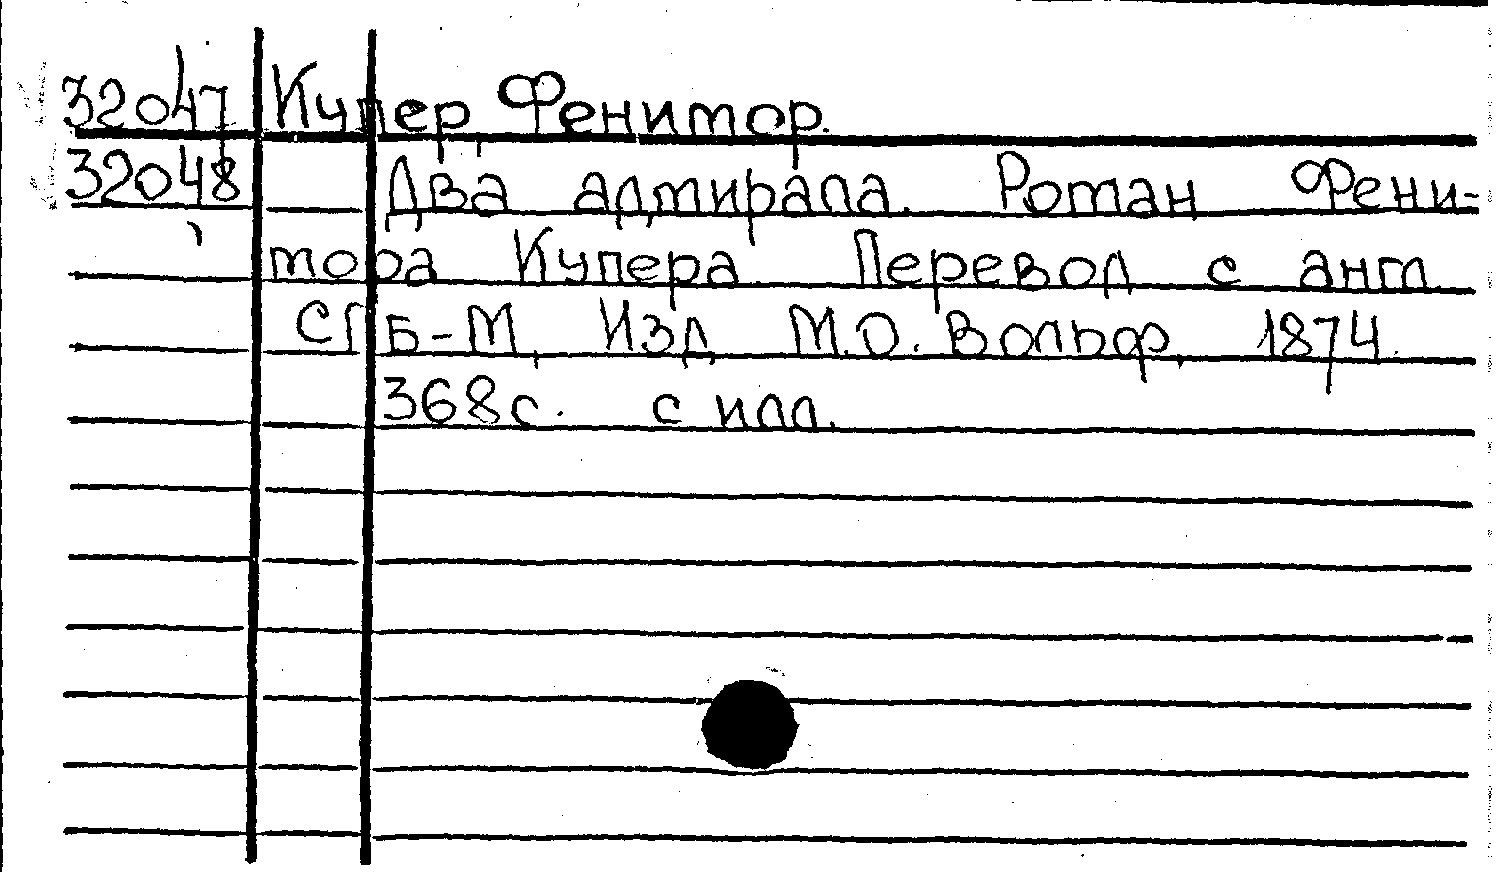 32047 Купер, Фенимор.
32048 Два адмирала. Роман Фени-
мора Купера. Перевод с англ.
СПБ-М, Изд. М.О. Вольф, 1874.
368с. с илл.